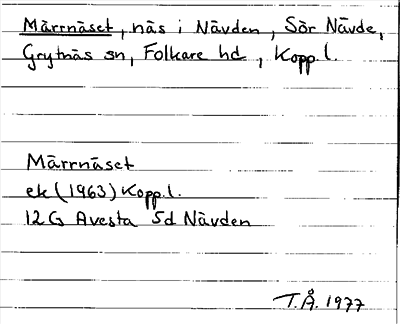 Märrnäset, näs i Nävden, Sör Nävde,
Grytnäs sn, Folkare hd, Kopp. l.
Märrnäset
ek (1963) Kopp. l.
12G Avesta 5d Nävden
T.Å. 1977